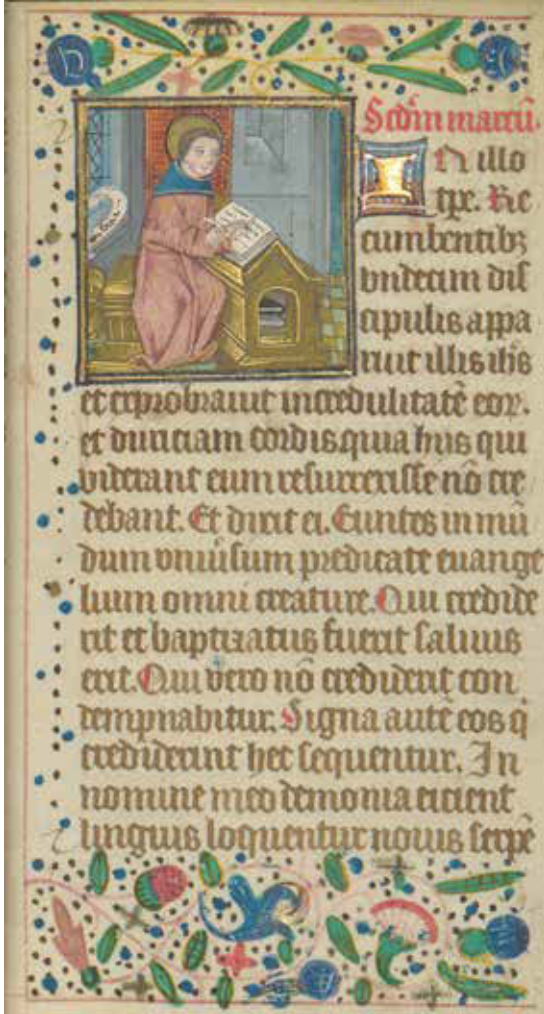 Scdm̄ marcū.
In illo
tp̄e. Re
cumbentibꝫ
vndecim dis
cipulis appa
ruit illis ih̄s
et exprobrauit incredulitatē eoꝝ.
et duriciam cordis quia hiis qui
viderant eum resurrexisse nō cre
debant. Et dixit ei. Euntes in mū
dum vniūsum predicate euange
lium omni creature. Qui credide
rit et baptizatus fuerit saluus
erit. Qui vero nō crediderit con
dempnabitur. Signa autē eos q̄
crediderint hec sequentur. In
nomine meo demonia eicient
linguis loquentur nouis serpē